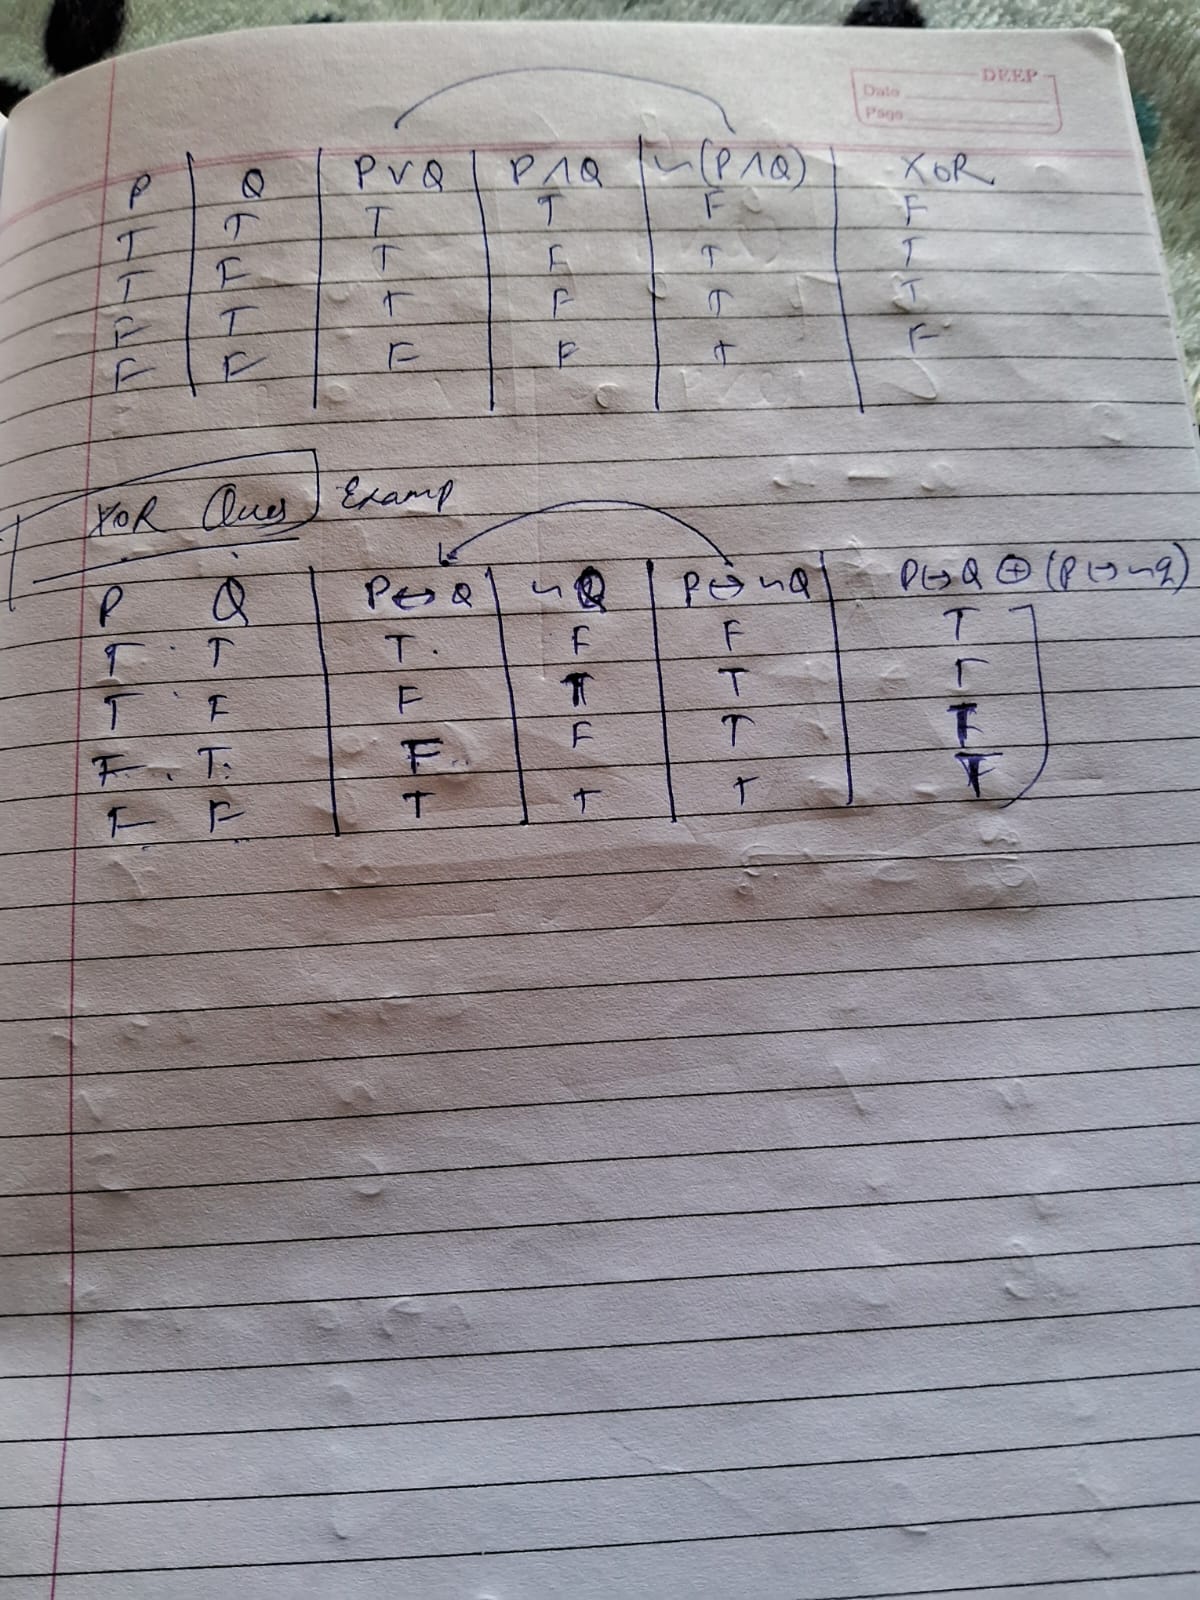 DEEP
Date
Page
P Q P∨Q P∧Q ~(P∧Q) XOR
T T T T F F
T F T F T T
F T T F T T
F F F F T F
XOR Ques Examp
P Q P↔Q ~Q P↔~Q P↔Q ⊕ (P↔~q)
T T T F F T
T F F T T T
F T F F T
F F T T T